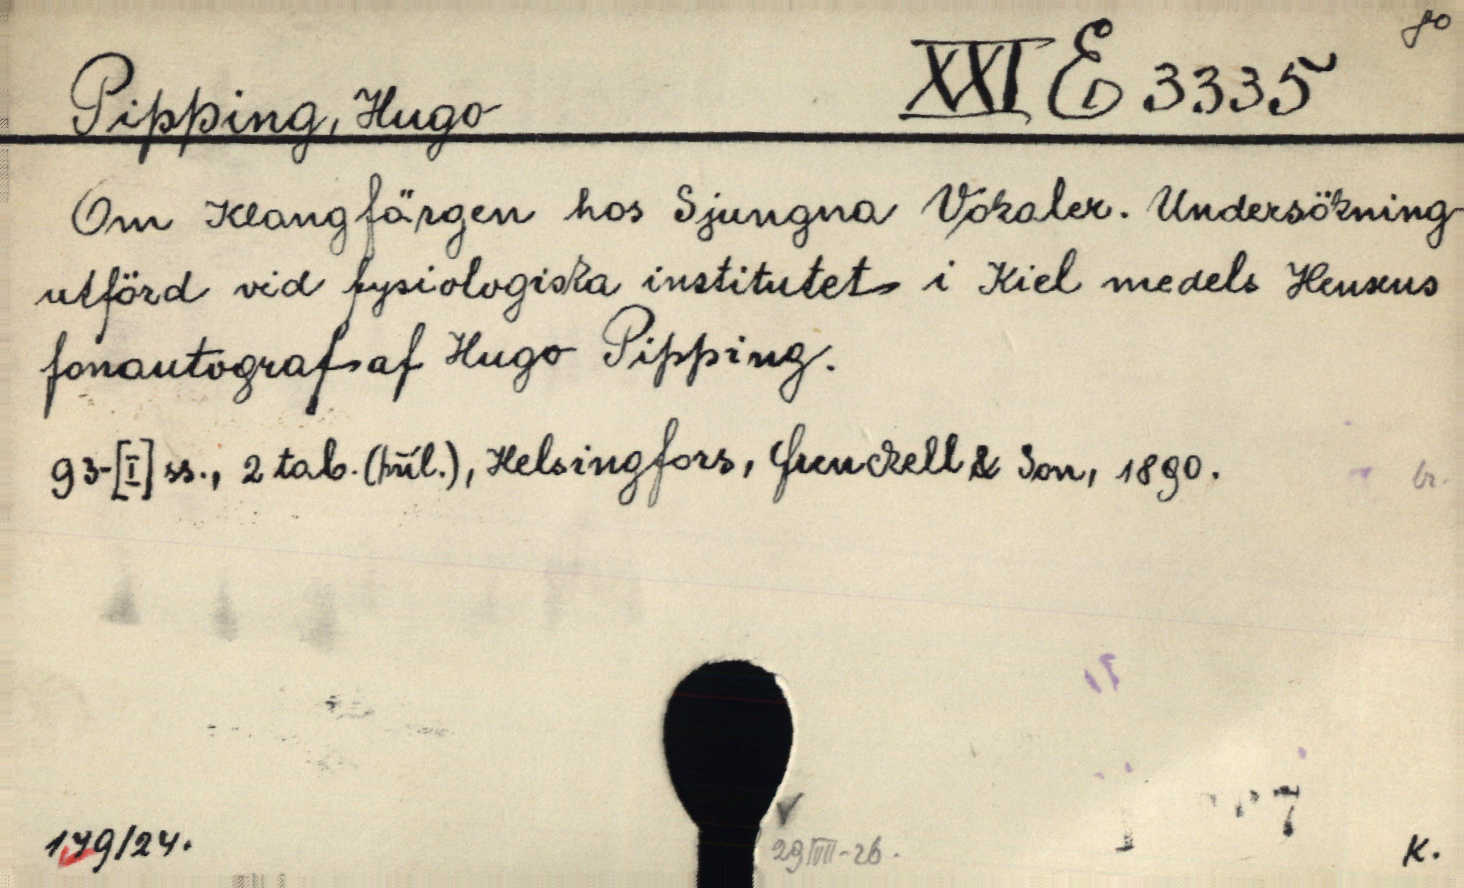 80
XXI E 3335
Pipping, Hugo
Om Klangfärgen hos Sjungna Vokaler. Undersökning
utförd vid fysiologiska institutet i Kiel medels Hensens
fonautograf af Hugo Pipping.
93-[I] ss., 2 tab. (příl.), Helsingfors, Frenckell & Son, 1890.
br.
179/24.
29/VIII-26.
K.